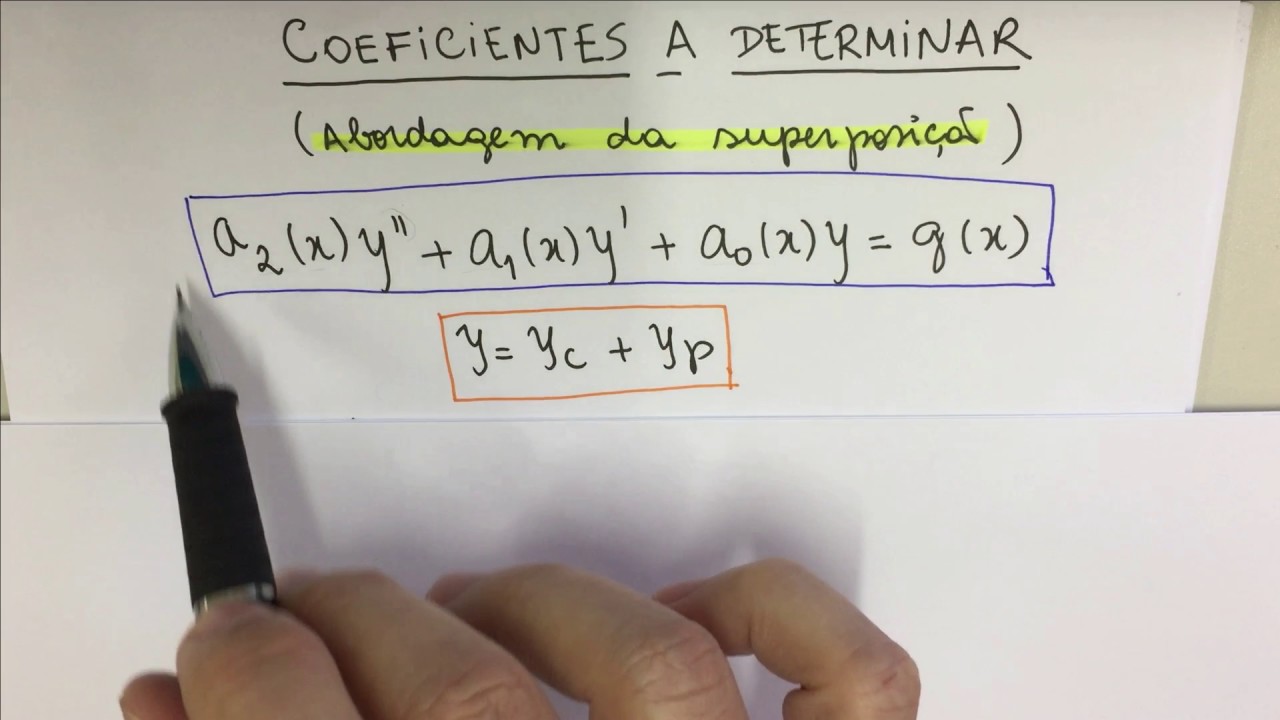 COEFICIENTES A DETERMINAR
(Abordagem da superposição)
a₂(x)y'' + a₁(x)y' + a₀(x)y = g(x)
y = yc + yp